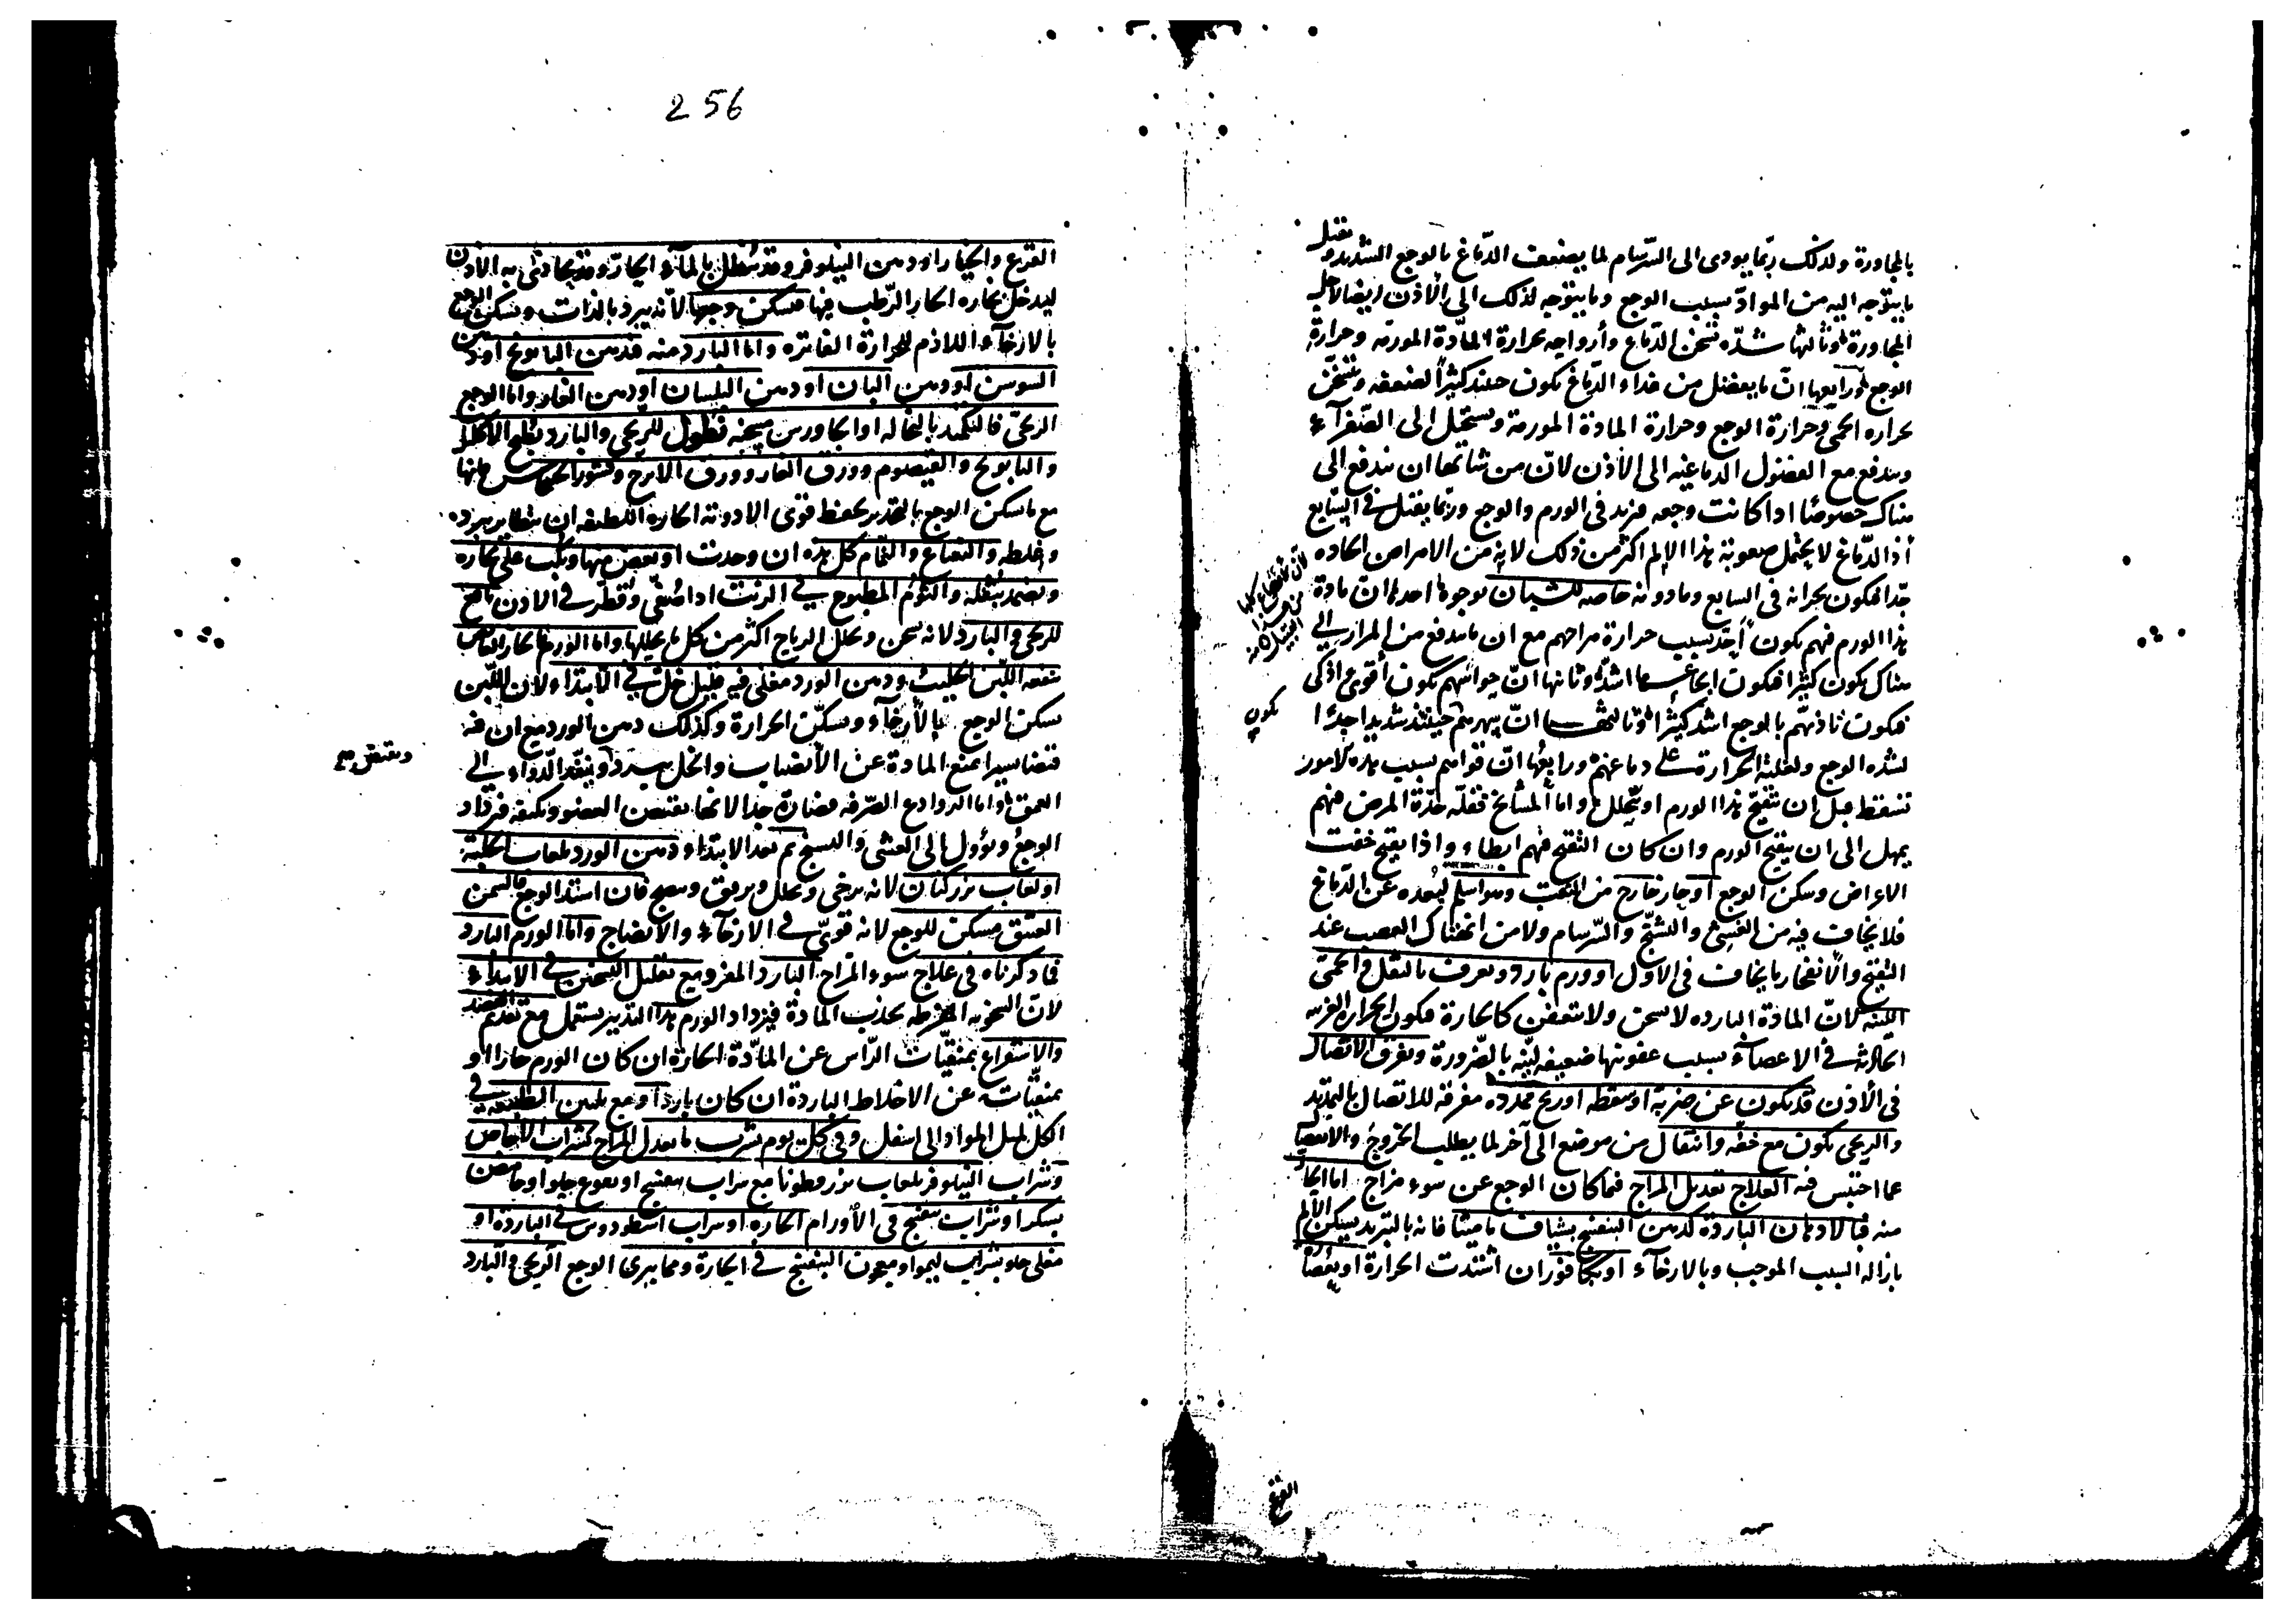 بالمجاورة ولذلك ربّما يودى الى السّرسام لما يضعف الدّماغ بالوجع الشديد ويقبل
ما يتوجه اليه من الموادّ بسبب الوجع وما يتوجه لذلك الى الأذن ايضا لاجل
المجاورة وثالثها شدّه تسخن الدّماغ وأرواحه بحرارة المادّة المورمه وحرارة
الوجع ورابعها انّ ما يفضل من غذاء الدّماغ يكون حينئذ كثيراً لضعفه وتسخن
بحراره الحمى وحرارة الوجع وحرارة المادة المورمة ويستحيل الى الصّفرآء
ويندفع مع الفضول الدماغيه الى الأذن لانّ من شانها ان تندفع الى
هناك خصوصًا اذا كانت وجعه فيزيد فى الورم والوجع وربّما يقتل فى السّابع
أذ الدّماغ لا يحتمل صعوبة هذا الالم اكثر من ذلك لانه من الامراض الحاده
جدّا فيكون بحرانه فى السابع وما دونه خاصه للشبان لوجوه احدها انّ مادة
هذا الورم فيهم يكون أحدّ بسبب حرارة مزاجهم مع ان ما يندفع من المرار الى
هناك يكون كثيرًا فيكون ايجاعها اشدّ وثانيها انّ حواسّهم يكون أقوى واذكى
فيكون تاذيهم بالوجع اشد كثيرًا وثالثها انّ سهرهم حينئذ شديدا جدًا
لشده الوجع ولغلبة الحرارة على دماغهم ورابعُها انّ قواهم بسبب هذه الامور
تسقط قبل ان يتقيّح هذا الورم او يتحلل واما المشايخ فلقلّه حدّة المرض فيهم
يمهل الى ان يتقيح الورم وان كان التقيح فيهم ابطاء واذا تقيح خفت
الاعراض وسكن الوجع او حار خارج من الثقب وهو اسلم لبُعده عن الدّماغ
فلا يخاف فيه من الغشى والتشنّج والسّرسام ولا من انهتاك العصب عند
التقيح والانفجار ما يخاف فى الاول او ورم بارد ويعرف بالثقل والحمّى
اللّينه لانّ المادة البارده لا تسخن ولا تتعفن كالحارة فيكون الحرارة الغريبه
الحادثة فى الاعضآء بسبب عفونتها ضعيفه ليّنه بالضّرورة وتفرق الاتصال
فى الأذن قد يكون عن ضربة او سقطه او ريح ممدده مفرقه للاتصال بالتمديد
والريحى يكون مع خفّه وانتقال من موضع الى آخر لما يطلب الخروج والانفصال
عما احتبس فيه العلاج تعديل المزاج فيما كان الوجع عن سوء مزاج اما الحار
منه فبالادهان الباردة كدهن البنفسج بشياف ماميثا فانه بالتبريد يسكن الألم
بازاله السبب الموجب وبالارخآء او بكافور ان اشتدت الحرارة او بعُصارة
يكون
القرع
256
القرع والخيار او دهن النيلوفر وقد يُنطل بالمآء الحارّ وقد يحاذى به الاذن
ليدخل بخاره الحار الرّطب فيها فيسكن وجعها لانّه يبرد بالذات ويسكن الوجع
بالارخآء اللازم للحرارة الفاتره واما البارد منه فدهن البابونج او دهن
السوسن او دهن البان او دهن البلسان او دهن الغار واما الوجع
الريحىّ فالتكميد بالنخاله او الجاورس مسخنه نطول للريحى والبارد يطبخ الاكليل
والبابونج والقيصوم وورق الغار وورق الاترج وقشور الخشخاش فانها
مع ما تسكن الوجع بالتخدير يحفظ قوى الادويه الحاره اللطيفه ان يتطاير ببرده
وغلظه والنعناع والنمّام كل هذه ان وجدت او بعض منها ويكب على بخاره
ويضمد بثفله والثوم المطبوخ فى الزيت اذا صُفّى وقُطّر فى الاذن نافع
للريحى والبارد لانه يسخن ويحلل الرياح اكثر من كل ما يحللها واما الورم فالحار الغائص
ينفعه اللّبن الحليب ودهن الورد مغلى فيه قليل خل فى الابتداء لان اللّبن
يسكن الوجع بالأرخآء ويسكّن الحرارة وكذلك دهن الورد مع ان فيه
قبضا يسيرا يمنع المادة عن الأنصباب والخل يبرد وينفّذ الدّواء الى
العمق واما الروادع الصّرفه فضارة جدا لانها تقبض العضو وتكثفه فيزداد
الوجعُ ويؤول الى الغشى والتشنج ثم بعد الابتداء دهن الورد بلعاب الحلبة
او لعاب بزر كتان لانه يرخى ويحلل ويرقق وينضج فان اشتد الوجع فالسمن
العتيق مسكن للوجع لانه قوىّ فى الارخآء والانضاج واما الورم البارد
فما ذكرناه فى علاج سوء المزاج البارد المفرد مع تقليل التسخين فى الابتداء
لانّ السخونه المفرطه تجذب المادة فيزداد الورم هذا التدبير يستعمل مع تقديم الفصد
والاستفراغ بمنقيّات الرّاس عن المادّة الحارة ان كان الورم حارا او
بمنقيّات عن الاخلاط الباردة ان كان باردا ومع تليين الطبيعه فى
الكل لميل المواد الى اسفل وفى كل يوم يشرب ما يعدل المزاج كشراب الاجاص
وشراب النيلوفر بلعاب بزر قطونا مع شراب بنفسج او نقوع حلو او حامض
بسكر او شراب بنفسج فى الأورام الحاره او شراب اسطوخودوس فى الباردة او
مغلى حلو بشراب ليمو او معجون البنفسج فى الحارة ومما يبرى الوجع الريحى والبارد
وتقبض صح